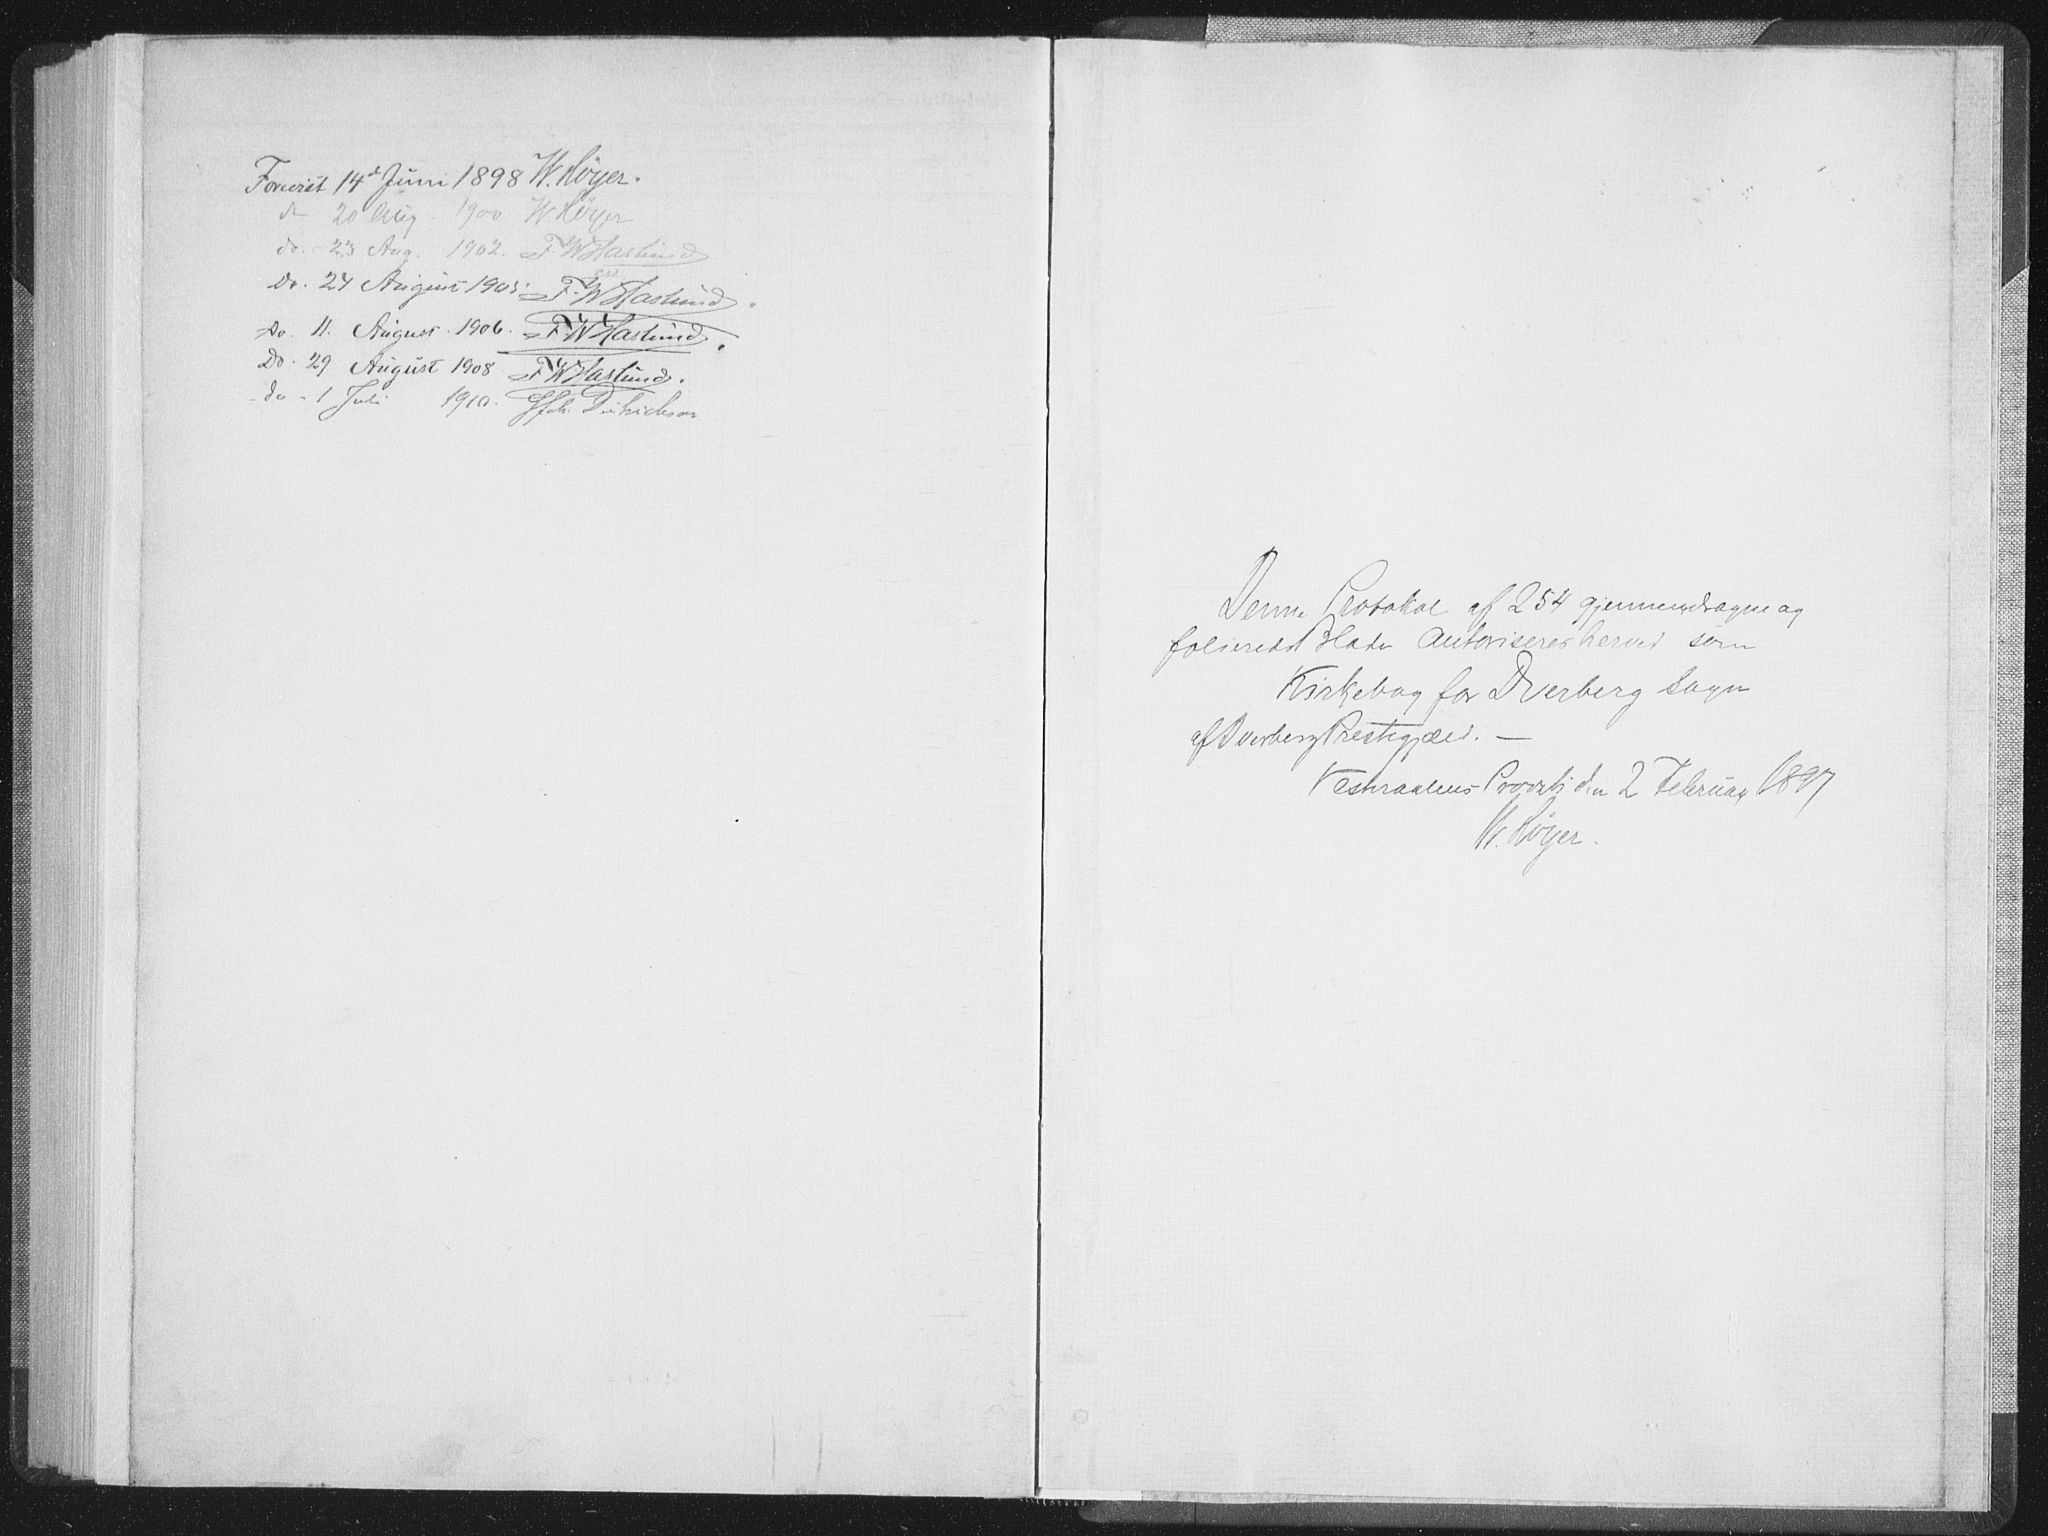 Forevist 14d Juni 1898 W. Höyer.
do 20 Aug. 1900 W. Höyer
do. 23 Aug. 1902. F. W. Haslund
Do. 24 August 1905. F. W. Haslund.
Do. 11. August 1906. F. W. Haslund.
Do. 29 August 1908 F. W. Haslund.
do - 1 Juli 1910. Dietrichson
Denne Protokol af 254 gjennemdragne og
folierede Blade autoriseres herved som
Kirkebog for Dverberg Sogn
af Dverberg Prestegjæld. —
Vesteraalens Provsti den 2 Februar 1897
W. Höyer.